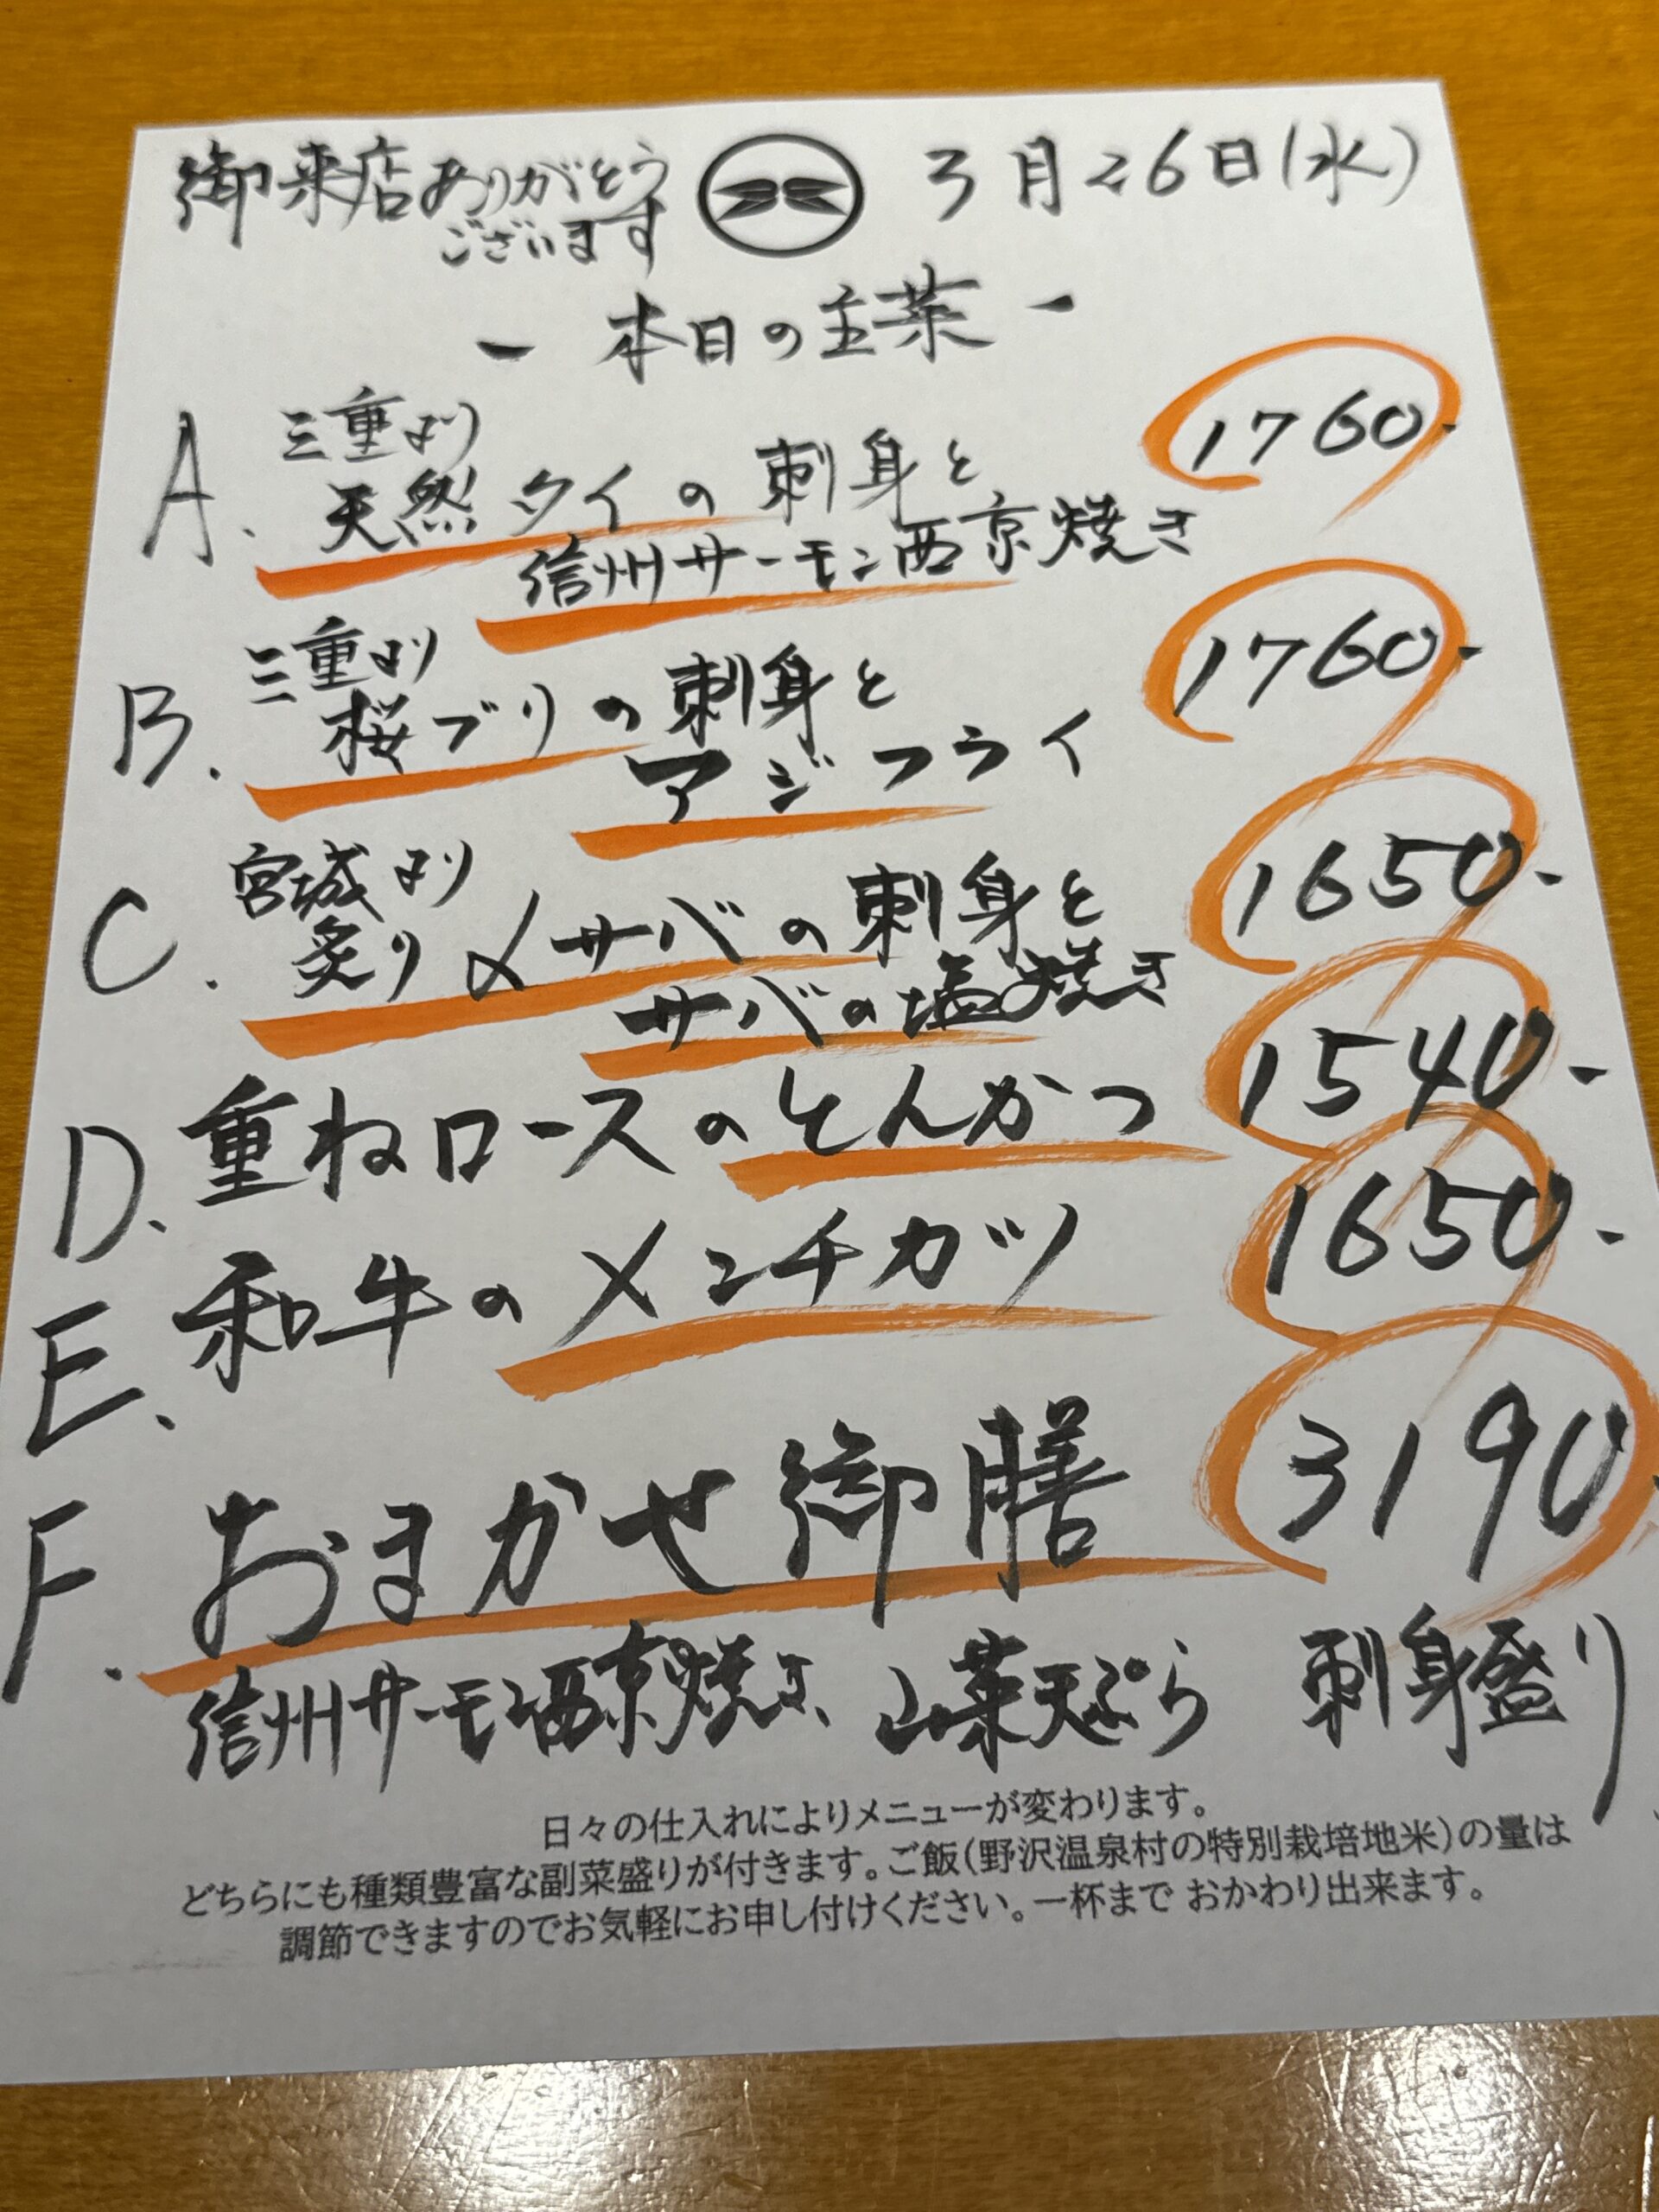 御来店ありがとう
ございます
3月26日(水)
- 本日の主菜 -
A. 三重より
天然タイの刺身と
信州サーモン西京焼き
1760-
B. 三重より
桜ブリの刺身と
アジフライ
1760-
C. 宮城より
炙り〆サバの刺身と
サバの塩焼き
1650-
D. 重ねロースのとんかつ 1540-
E. 和牛のメンチカツ 1650-
F. おまかせ御膳 3190-
信州サーモン西京焼き、山菜天ぷら 刺身盛り
日々の仕入れによりメニューが変わります。
どちらにも種類豊富な副菜盛りが付きます。ご飯(野沢温泉村の特別栽培地米)の量は
調節できますのでお気軽にお申し付けください。一杯まで おかわり出来ます。